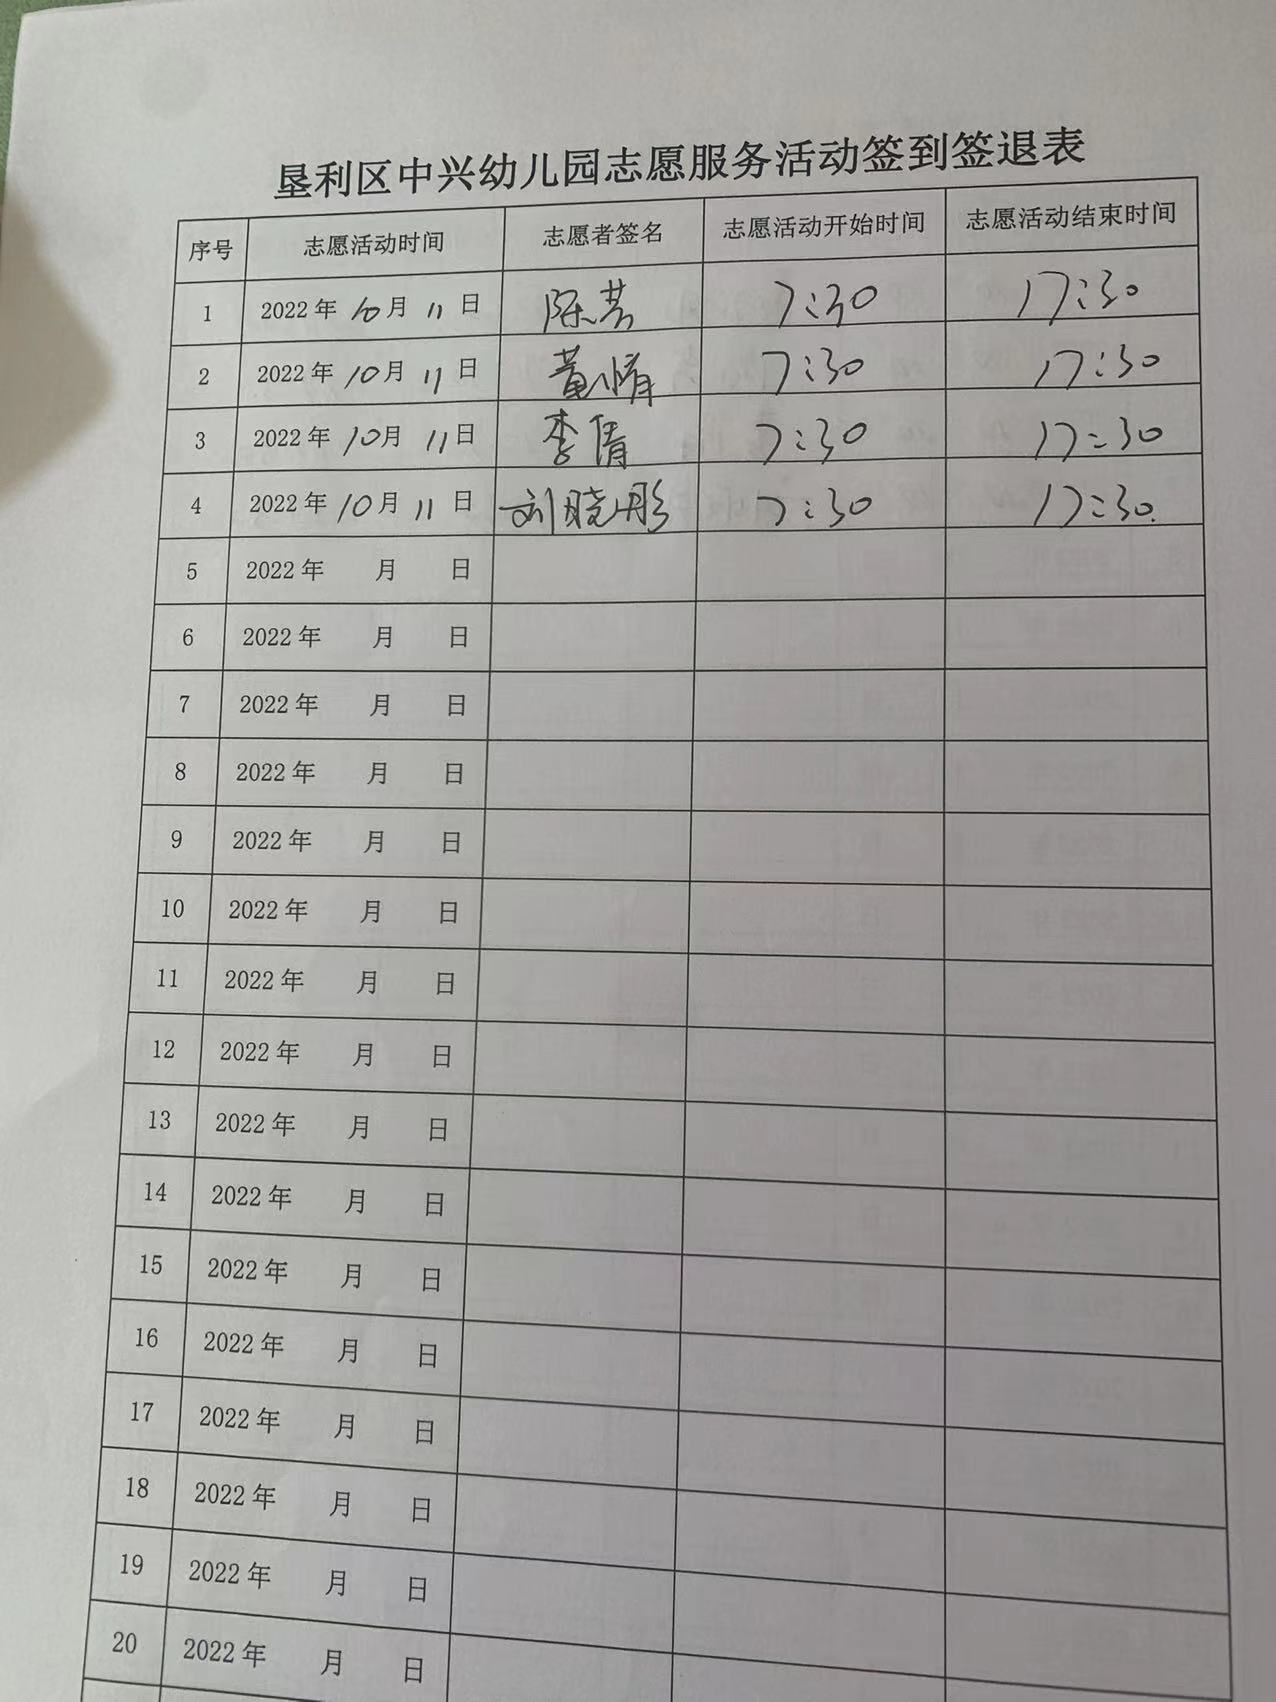 垦利区中兴幼儿园志愿服务活动签到签退表
序号 志愿活动时间 志愿者签名 志愿活动开始时间 志愿活动结束时间
1 2022年 10月 11日 陈芸 7:30 17:30
2 2022年 10月 11日 黄婧 7:30 17:30
3 2022年 10月 11日 李倩 7:30 17:30
4 2022年 10月 11日 刘晓彤 7:30 17:30.
5 2022年 月 日
6 2022年 月 日
7 2022年 月 日
8 2022年 月 日
9 2022年 月 日
10 2022年 月 日
11 2022年 月 日
12 2022年 月 日
13 2022年 月 日
14 2022年 月 日
15 2022年 月 日
16 2022年 月 日
17 2022年 月 日
18 2022年 月 日
19 2022年 月 日
20 2022年 月 日